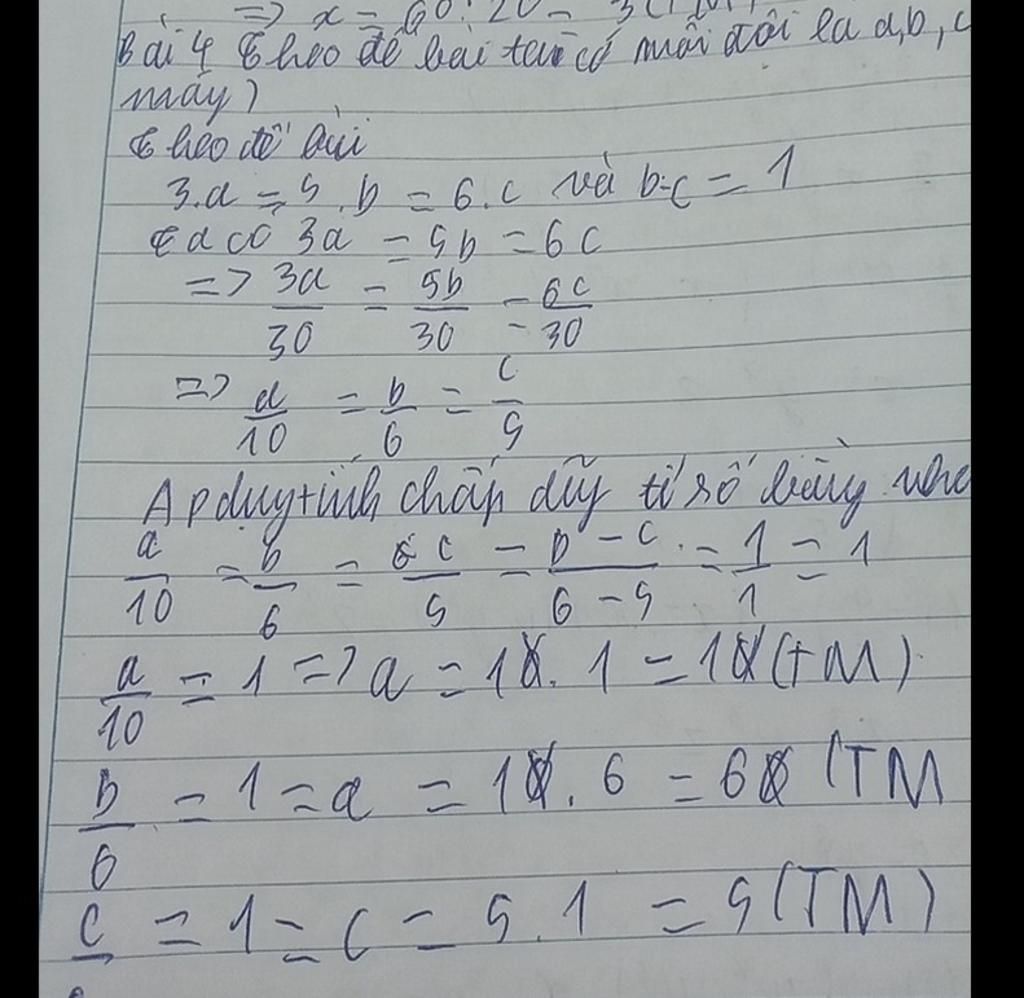 => x = 60 : 20 = 3 (TM)
Bài 4 Theo đề bài ta có mỗi đội la a, b, c
máy)
Theo đề bài
3.a = 5.b = 6.c và b-c = 1
Ta có 3a = 5b = 6c
=> 3a/30 = 5b/30 = 6c/30
=> a/10 = b/6 = c/5
Ap dụy tính chấp dãy tỉ số bằng nha
a/10 = b/6 = c/5 = b - c/6 - 5 = 1/1 = 1
a/10 = 1 => a = 10.1 = 10 (TM)
b/6 = 1 = a = 10.6 = 60 (TM
c/ = 1 = c = 5.1 = 5 (TM)